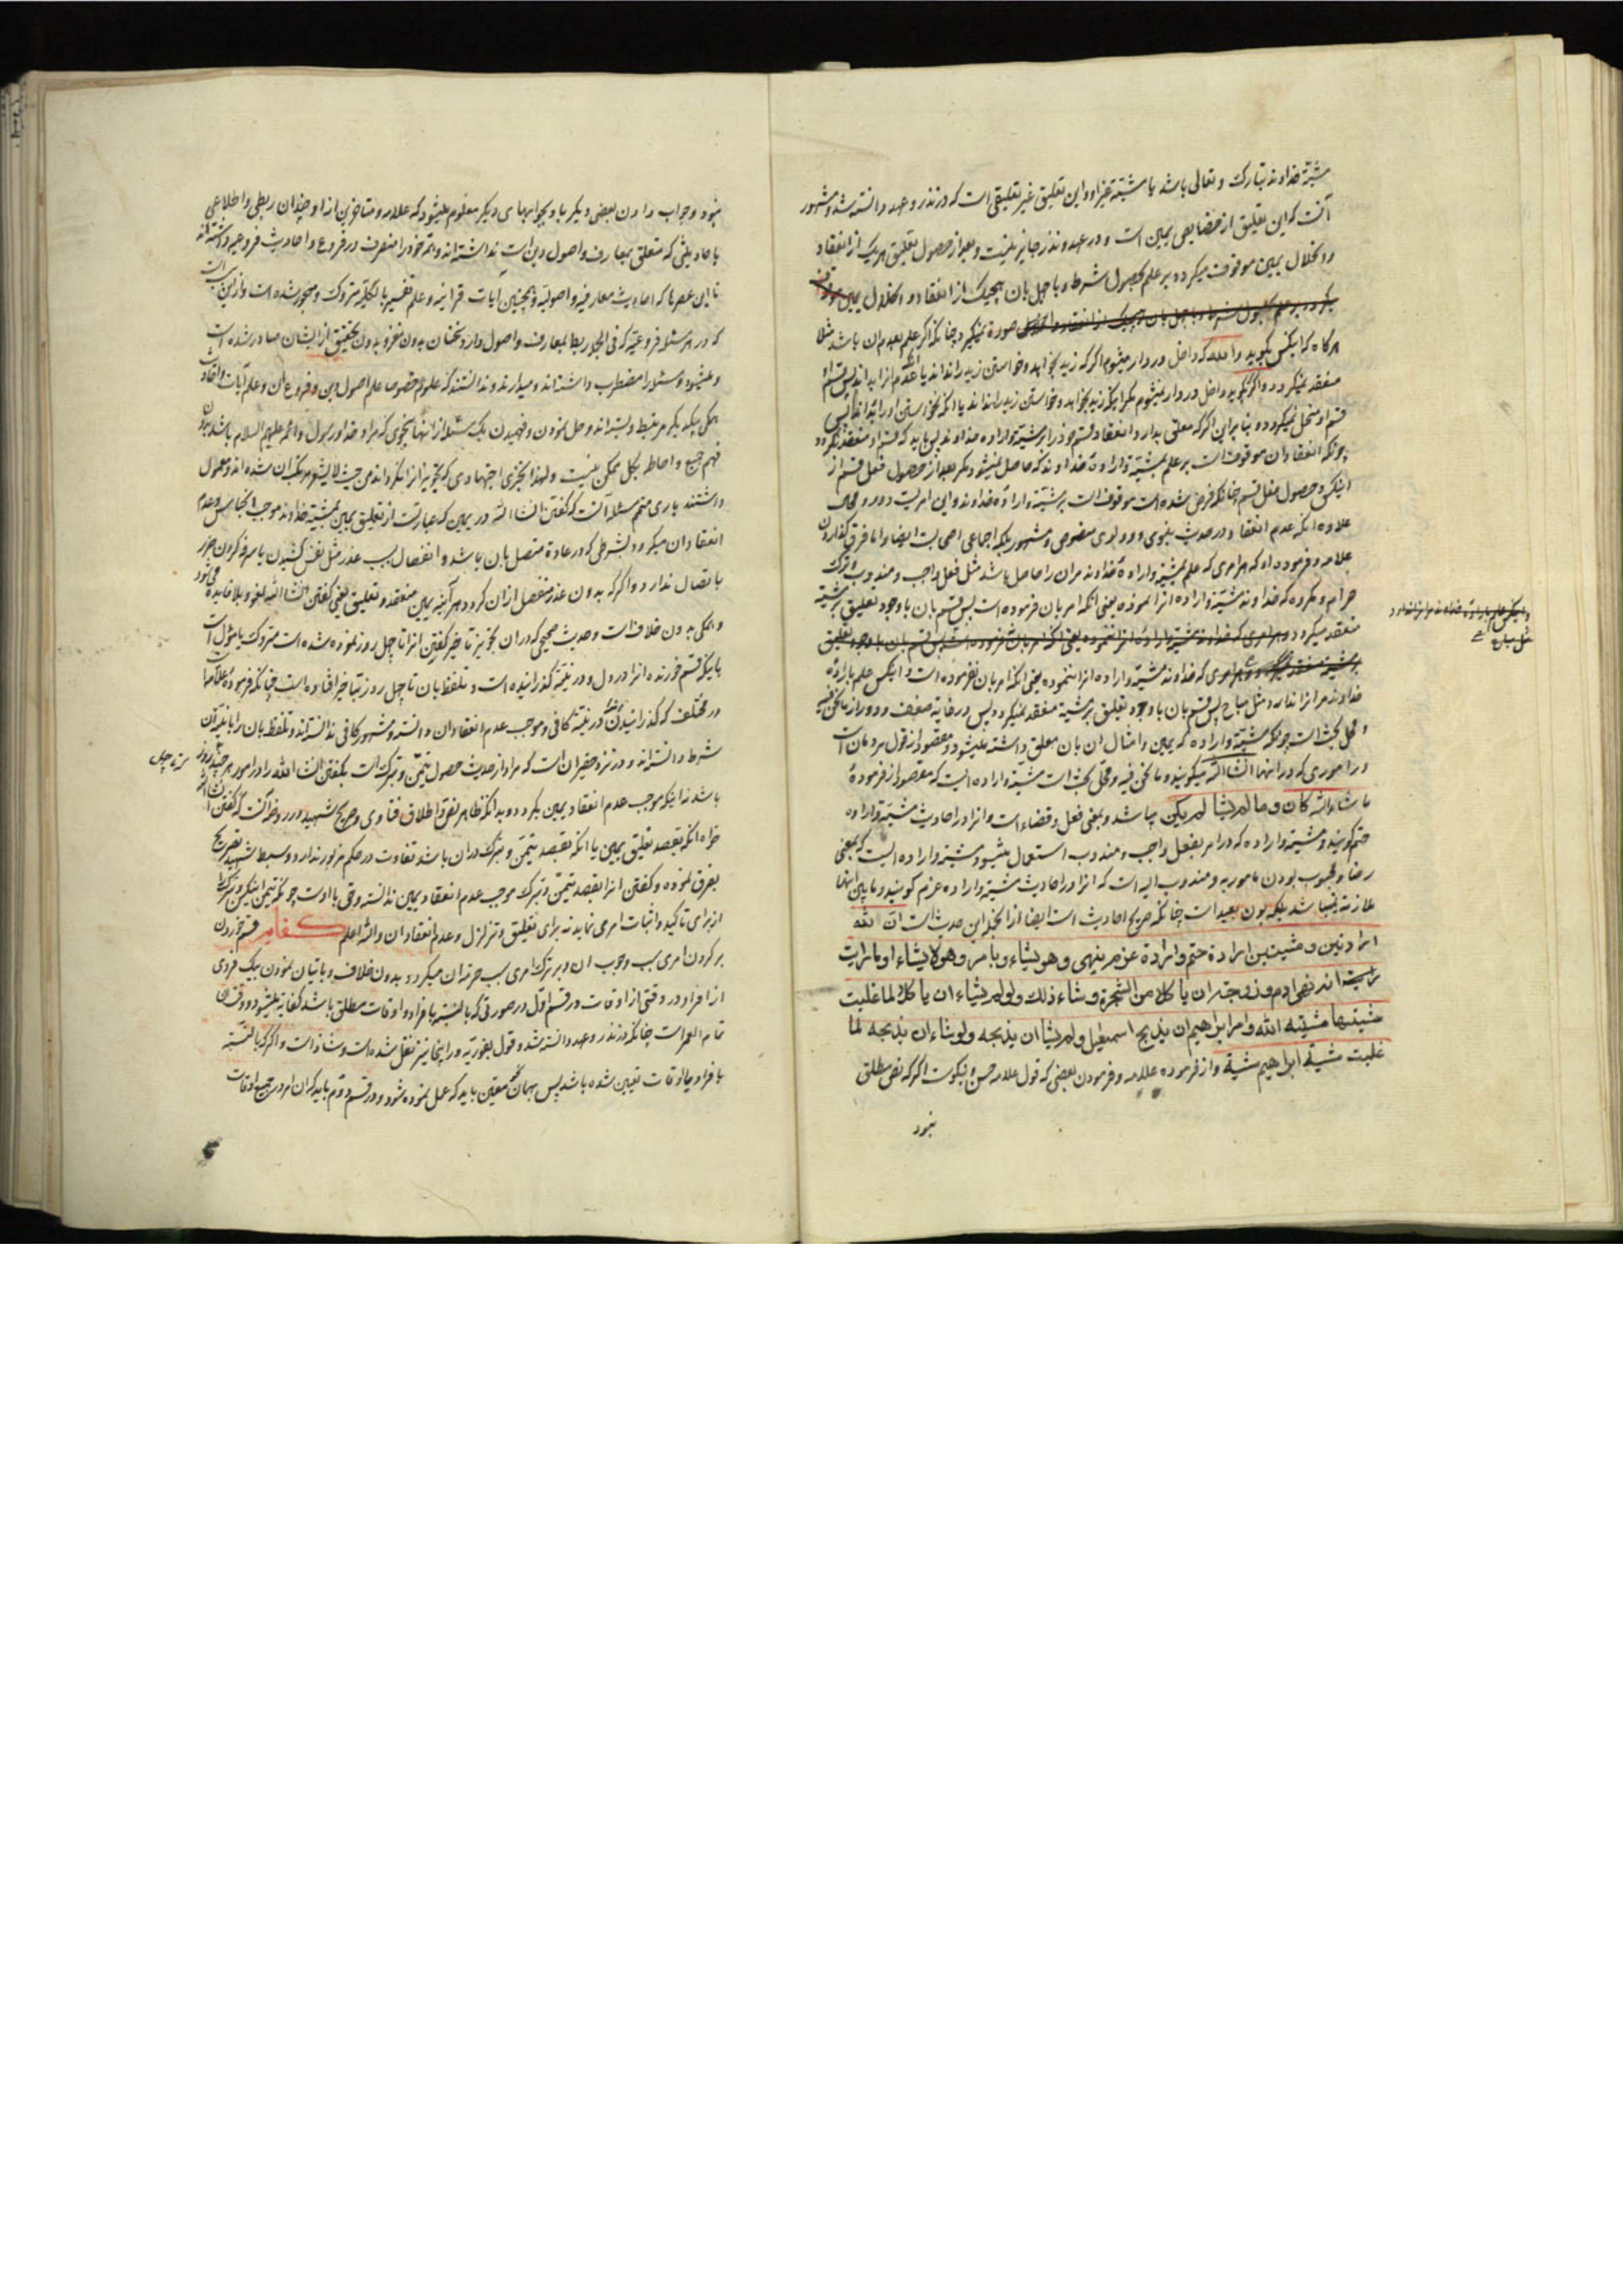 مشیّة خداوند تبارک و تعالی باشد یا مشیّة غیر او و این تعلیق غیر تعلیقی است که در نذر و عهد دانسته شد و مشهور
آنست که این تعلیق از خصایص یمین است و در عهد و نذر جایز نیست و بعد از حصول تعلیق هر یک از انعقاد
و انحلال یمین موقوف میگردد بر علم بحصول شرط و با جهل بان هیچیک از انعقاد و انحلال یمین
صورة نمیگیرد چنانکه اگر علم بعدم ان باشد مثلا
هرگاه که اینکس بگوید والله که داخل در دار میشوم اگر که زید بخواهد و خواستن زید را نداند یا عدم انرا بداند پس قسم او
منعقد نمیگردد و اگر بگوید داخل در دار میشوم مگر اینکه زید بخواهد و خواستن زید را نداند یا انکه نخواستن او را بداند پس
قسم او منحل نمیگردد و بنابراین اگر که معلق بدارد انعقاد قسم خود را بر مشیّة و اراده خداوند پس باید که قسم او منعقد نگردد
چونکه انعقاد ان موقوفست بر علم بمشیّة و ارادهٔ خداوند که حاصل نمیشود مگر بعد از حصول فعل قسم از
اینکس و حصول فعل قسم چنانکه فرض شده است موقوف است بر مشیّة و ارادهٔ خداوند و این امریست دوری و محال
علاوه اینکه عدم انعقاد در حدیث نبوی و مولوی منصوص و مشهور بلکه اجماعی اصحابست ایضا و اما فرق گذاردن
علامه و فرموده او که هر امری که علم بمشیّة و ارادهٔ خداوند مران را حاصل باشد مثل فعل واجب و مندوب و ترک
حرام و مکروه که خداوند مشیّة و اراده انرا نموده یعنی انکه امر بان فرموده است پس قسم بان با وجود تعلیق بر مشیّة
منعقد میگردد و هر امری که خداوند مشیّة و ارادهٔ انرا ننموده یعنی انکه امر بان نفرموده است پس قسم بان با وجود تعلیق
بر مشیّة منعقد نمیگردد و هر امری که خداوند مشیّة و اراده انرا ننموده یعنی انکه امر بان نفرموده است و اینکس علم بارادهٔ
خداوند مر انرا ندارد مثل مباح پس قسم بان با وجود تعلیق بر مشیّة منعقد نمیگردد پس در غایة ضعف و دور از ما نحن فیه
و محل بحث است چونکه مشیّة و اراده که یمین و امثال ان بان معلق داشته میشود و مقصود از قول مردمان است
در اموری که در انها انشاالله میگویند و ما نحن فیه و محل بحث است مشیّة و اراده ایست که مقصود از فرمودهٔ
ماشاءالله کان و ما لم یشا لم یکن میباشد و بمعنی فعل و قضاء است و انرا در احادیث مشیّة و اراده
حتم گویند و مشیّة و اراده که در امر بفعل واجب و مندوب استعمال میشود مشیّة و اراده ایست که بمعنی
رضا و محبوب بودن مامور به و مندوب الیه است که انرا در احادیث مشیّة و اراده عزم گویند و ما بین انها
ملازمة نمیباشد بلکه بون بعید است چنانکه صریح احادیث است ایضا از انجمله این حدیث است ان الله
ارادتین و مشیتین ارادة حتم و ارادة عزم ینهی و هو یشاء و یامر و هو لا یشاء او ما رایت
انه نهی ادم و زوجته ان یاکلا من الشجرة و شاء ذلک و لو لم یشاء ان یاکلا لما غلبت
مشیتهما مشیّة الله و امر ابراهیم ان یذبح اسمعیل و لم یشا ان یذبحه و لو شاء ان یذبحه لما
غلبت مشیّة ابراهیم مشیة و از فرموده علامه و فرمودن بعضی که قول علامه حسن و نیکوست اگر که نص مطلق
نبود
و اینکس علم بارادهٔ خداوند مر انرا ندارد
مثل مباح
نبود و جواب دادن بعضی دیگر باو بجوابهای دیگر معلوم میشود که علامه و متاخرین از او چندان ربطی و اطلاعی
باحادیثی که متعلق بمعارف و اصول دین است نداشته‌اند و همّ خود را منصرف در فروع و احادیث فروعیه داشته‌اند
تا این عصر ما که احادیث معارفیه و اصولیّه و همچنین آیات قرانیه و علم تفسیر بالکلیّه متروک و مهجور شده است و از این است
که در هر مسئله فروعیّه که فی الجمله ربط بمعارف و اصول دارد سخنان بدون مغز و بدون تحقیق از ایشان صادر شده است
و میشود و مسئله را مضطرب داشته‌اند و میدارند و ندانستند که علوم خصوصا علم اصول دین و فروع ان و علم آیات
همگی بیکدیگر مرتبط و بسته‌اند و حل نمودن و فهمیدن یک مسئله از انها بنحوی که مراد خدا و رسول و ائمه علیهم السلام باشد بدون
فهم جمیع و احاطه بکل ممکن نیست و لهذا بتجزی اجتهادی که تجویز انرا نکرده‌اند من حیث لا یشعر مرتکب ان شده‌اند و معمول
داشتند باری متمم مسئله آنست که گفتن انشاالله در یمین که عبارتست از تعلیق یمین بمشیّة خداوند موجب انحلال و عدم
انعقاد ان میگردد بشرطی که در عادة متصل بان باشد و انفصال بسبب عذر مثل نفس کشیدن یا سرفه کردن ضرر
باتصال ندارد و اگر که بدون عذر منفصل از ان گردد هر آینه یمین منعقد و تعلیق یعنی گفتن انشاالله لغو و بلافایده میشود
و همگی بدون خلافست و حدیث صحیحی که در ان تجویز تاخیر گفتن انرا تا چهل روز نموده شده است متروک یا مؤوّل است
باینکه قسم خورنده انرا در دل و در نیّة گذرانیده است و تلفظ بان تا چهل روز بتاخیر افتاده است چنانکه فرمودهٔ علامه است
در مختلف که گذرانیدن در نیّة کافی و موجب عدم انعقاد ان دانسته و مشهور کافی ندانسته‌اند و تلفظ بان را با نیّة ان
شرط دانسته‌اند و در نزد حقیر ان است که مراد از حدیث حصول تیمّن و تبرک است بگفتن انشاالله را در امور هر چند روز
سه تا چهل
باشد نه اینکه موجب عدم انعقاد یمین بگردد و بدانکه ظاهر نص و اطلاق فتاوی و صریح شهید در روضه آنست که گفتن انشاالله
خواه انکه بقصد تعلیق یمین یا انکه بقصد تیمّن و تبرک در ان باشد تفاوت در حکم مزبور ندارد و سبط شهید تصریح
بفرق نموده و گفتن انرا بقصد تیمّن و تبرک موجب عدم انعقاد یمین ندانسته و حق با اوست چونکه تیمن اینکس و تبرک
از برای تاکید و اثبات امر می نماید نه برای تعلیق و تزلزل و عدم انعقاد ان والله اعلم قسم خوردن
بر کردن امری سبب وجوب ان و بر ترک امری سبب حرمة ان میگردد بدون خلاف و باتیان نمودن بیک فردی
از افراد در وقتی از اوقات در قسم اوّل در صورتی که بالنسبة بافراد و اوقات مطلق باشد کفایة میشود و وقت ان
تمام العمر است چنانکه در نذر و عهد دانسته شد و قول بفوریّة در اینجا نیز نقل شده است و شاذ است و اگر که بالنسبة
بافراد یا اوقات تعیین شده باشد پس بهمان نحو معیّن باید که عمل نموده شود و در قسم دوّم باید که ان امر در جمیع اوقات